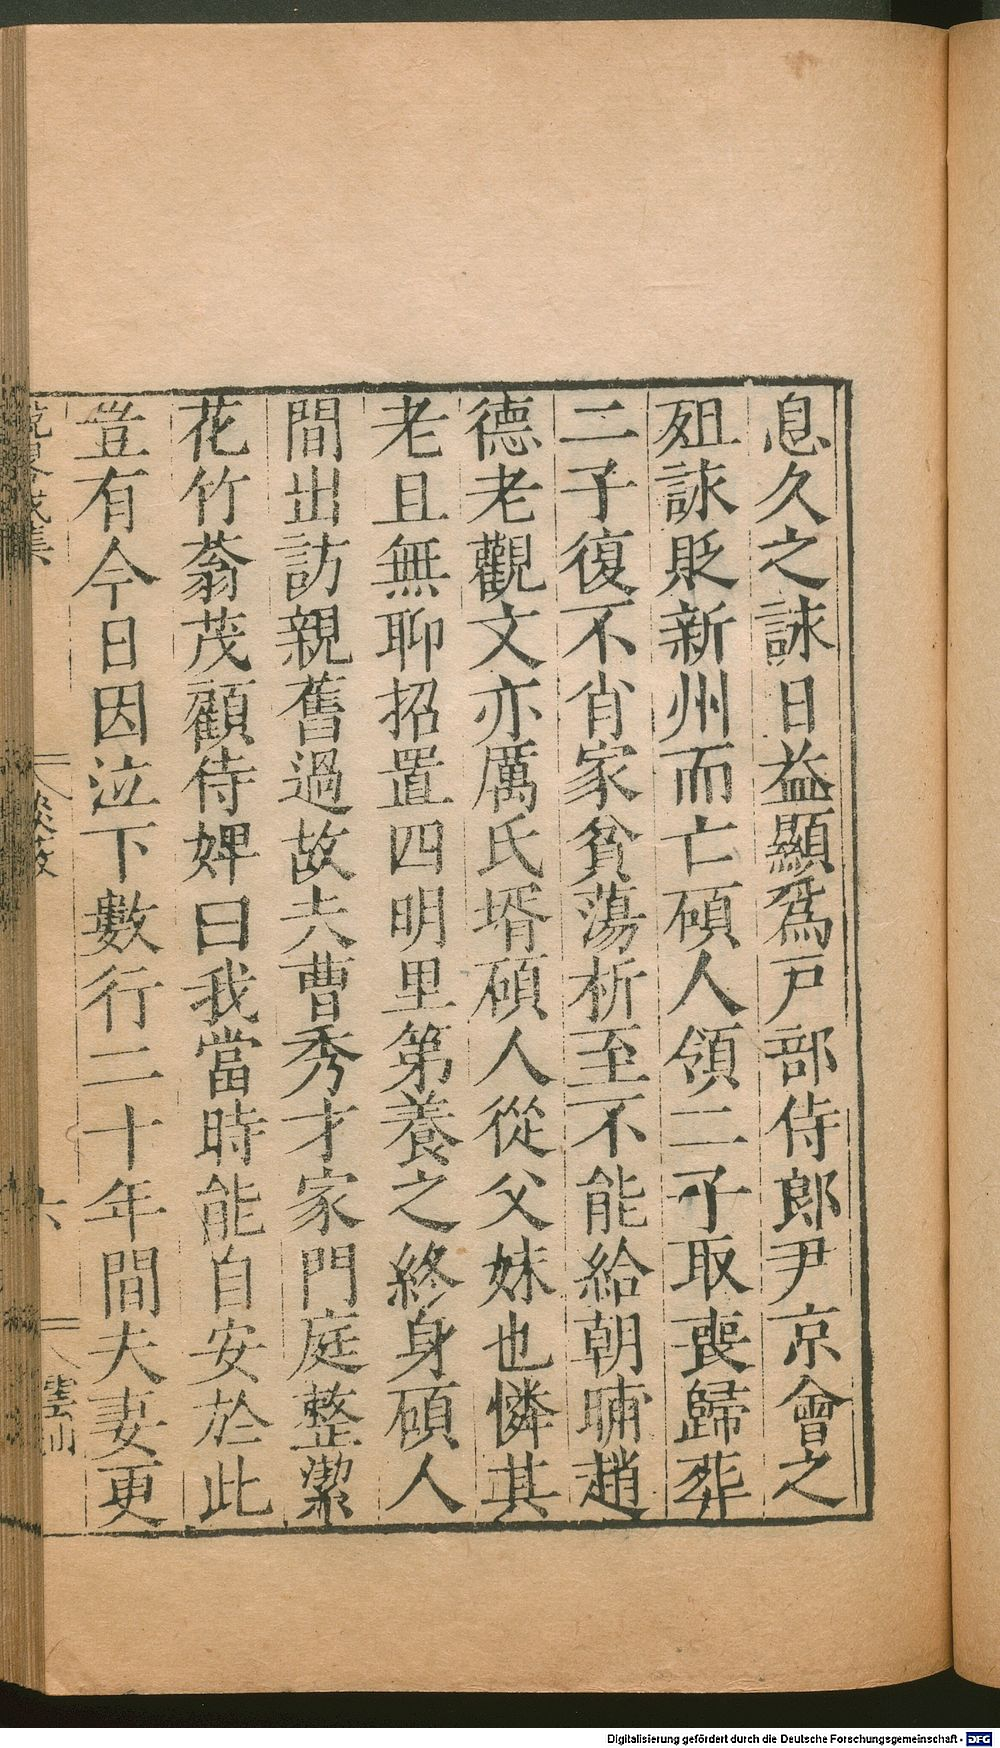 息久之詠日益顯爲戸部侍郎尹京會之
殂詠貶新州而亡碩人領二子取喪歸葬
二子復不肖家貧蕩析至不能給朝晡趙
德老觀文亦厲氏壻碩人從父妹也憐其
老且無聊招置四明里第養之終身碩人
間出訪親舊過故夫曹秀才家門庭整潔
花竹蓊茂顧侍婢曰我當時能自安於此
豈有今日因泣下數行二十年間夫妻更
六
Digitalisierung gefördert durch die Deutsche Forschungsgemeinschaft - DFG